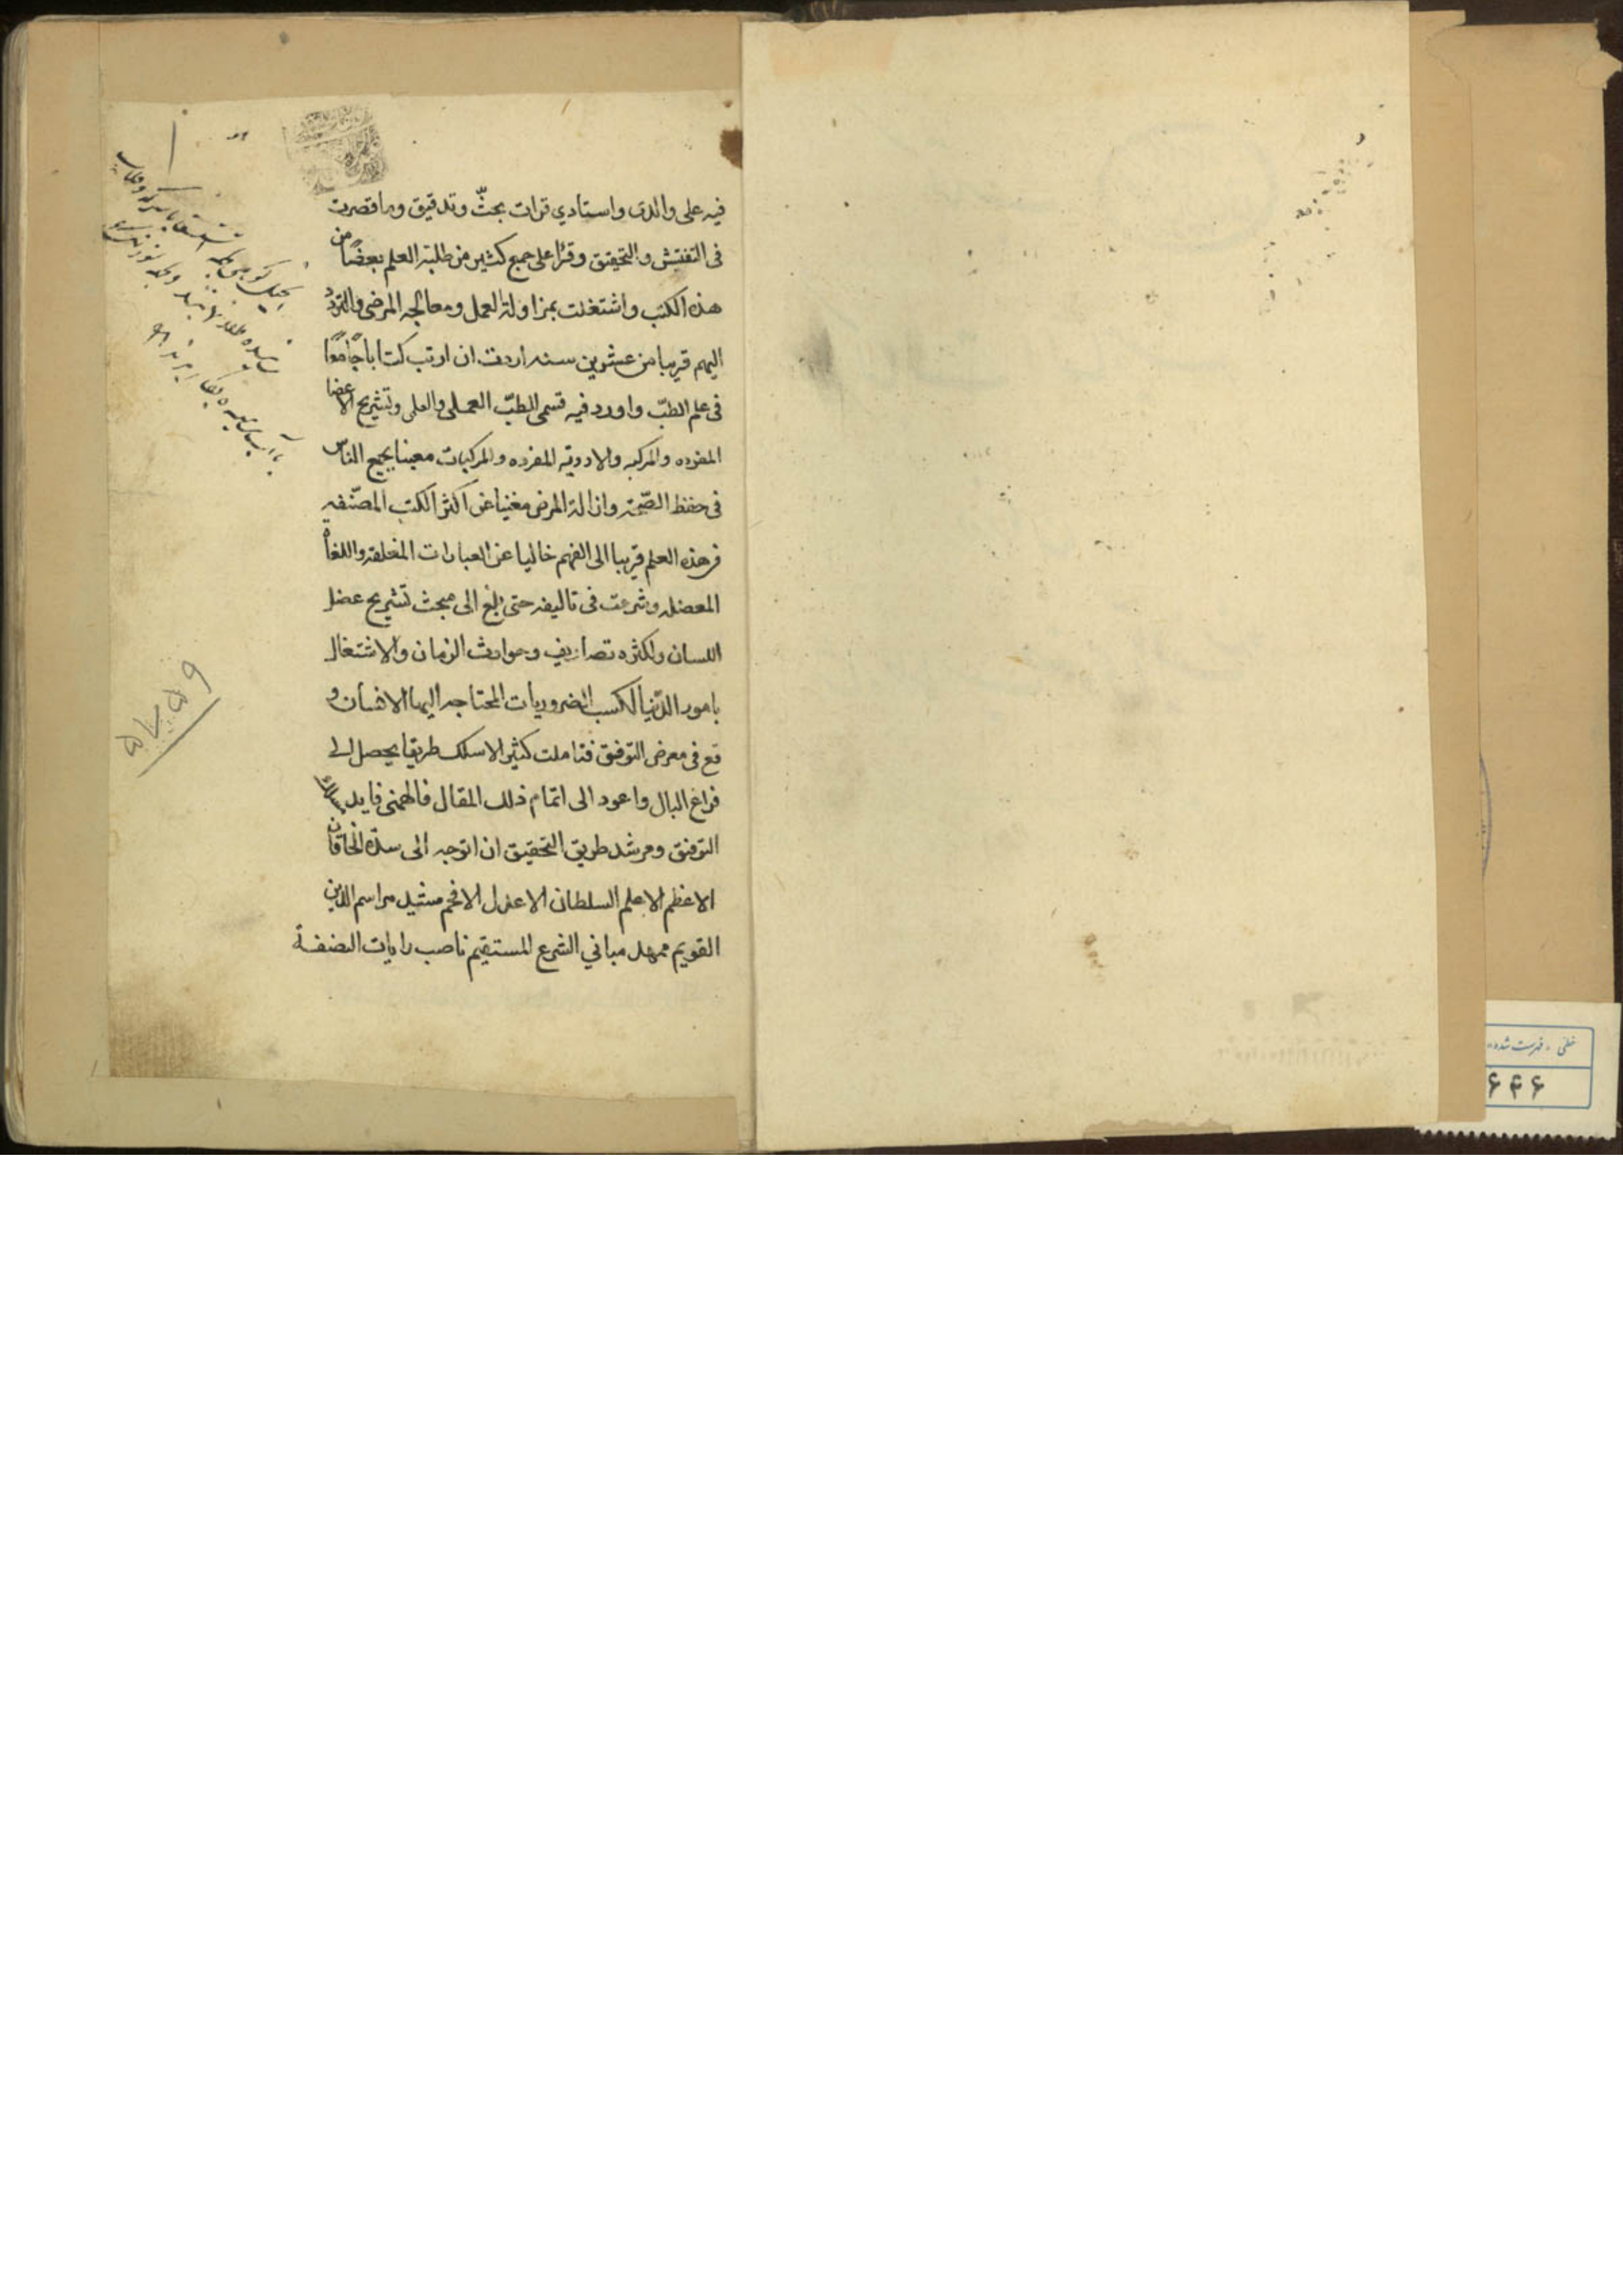 فيه على والدى واستادي قرات بحثّ وتدقيق وما قصرت
فى التفتيش والتحقيق وقرا على جمع كثير من طلبة العلم بعضًا من
هذه الكتب واشتغلت بمزاولة العمل ومعالجه المرضى والتردّد
اليهم قريبا من عشرين سنه اردت ان ارتب كتابا جامعًا
فى علم الطبّ واورد فيه قسمى الطبّ العملى والعلمى وتشريح الاعضا
المفرده والمركبه والادويه المفرده والمركبات معينا لجميع الناس
فى حفظ الصّحة وازالة المرض مغنيا عن اكثر الكتب المصنّفه
فى هذه العلم قريبا الى الفهم خاليا عن العبارات المغلقه واللغاة
المعضله وشرعت فى تاليفه حتى بلغ الى مبحث تشريح عضل
اللسان ولكثره تصاريف وحوادث الزمان والاشتغال
بامور الدّنيا لكسب الضروريات المحتاجه اليها الانسان و
قع فى معرض التوقف فتاملت كثيرا لاسلك طريقا يحصل لى
فراغ البال واعود الى اتمام ذلك المقال فالهمنى قايد
التوفيق ومرشد طريق التحقيق ان اتوجه الى سدّة الخاقان
الاعظم الاعلم السلطان الاعدل الافخم مشيد مراسم الدّين
القويم ممهد مباني الشرع المستقيم ناصب رايات النصفة
خطى - فهرست شده
۶۴۶